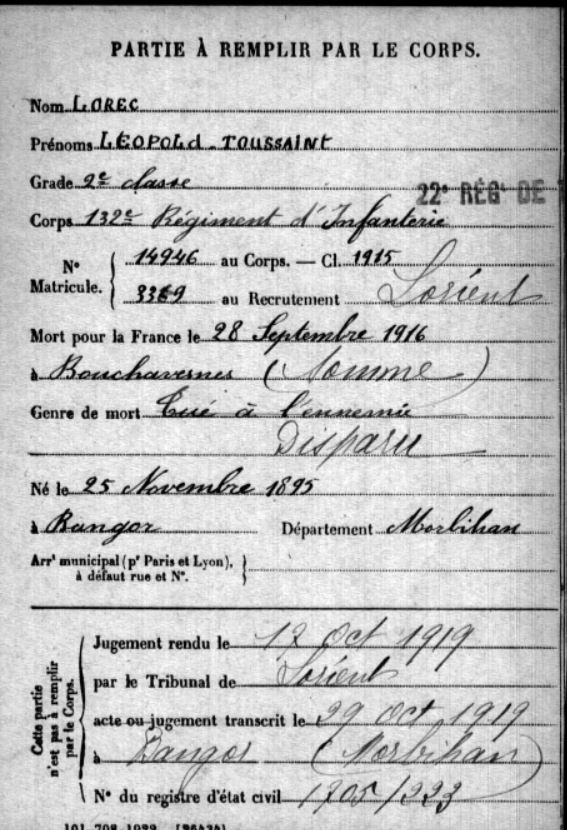 PARTIE À REMPLIR PAR LE CORPS.
Nom LOREC
Prénoms LÉOPOLd - TOUSSAINT
Grade 2e classe
22e RÉGt DE
Corps 132e Régiment d'Infanterie
No Matricule. 14946 au Corps. — Cl. 1915
3369 au Recrutement Lorient
Mort pour la France le 28 Septembre 1916
à Bouchavesnes (Somme)
Genre de mort Tué à l'ennemie
Disparu
Né le 25 Novembre 1895
à Bangor Département Morbihan
Arrt municipal (pr Paris et Lyon), à défaut rue et No.
Cette partie n'est pas à remplir par le Corps.
Jugement rendu le 12 Oct 1919
par le Tribunal de Lorient
acte ou jugement transcrit le 29 Oct 1919
à Bangor (Morbihan)
No du registre d'état civil 1705/223
101.708.1922. [26434]